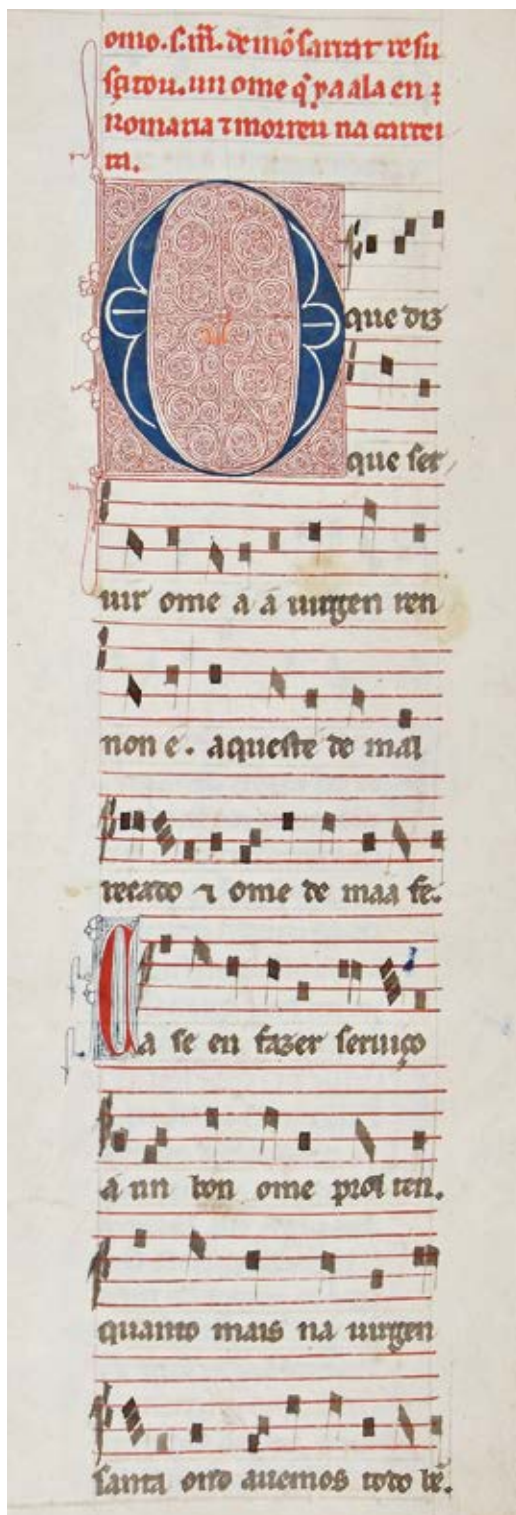 omo. s. m̃. de mõ sarrat resu
sçitou. un ome q̇ ya ala en
Romaria ⁊ morreu na carrei
ra.
O que diz
que ser
uir ome a a uirgen ren
non e. aqueste de mal
recado ⁊ ome de maa fe.
Ca se en fazer seruiço
a un bon ome prol ten.
quanto mais na uirgen
santa ond auemos todo bẽ.